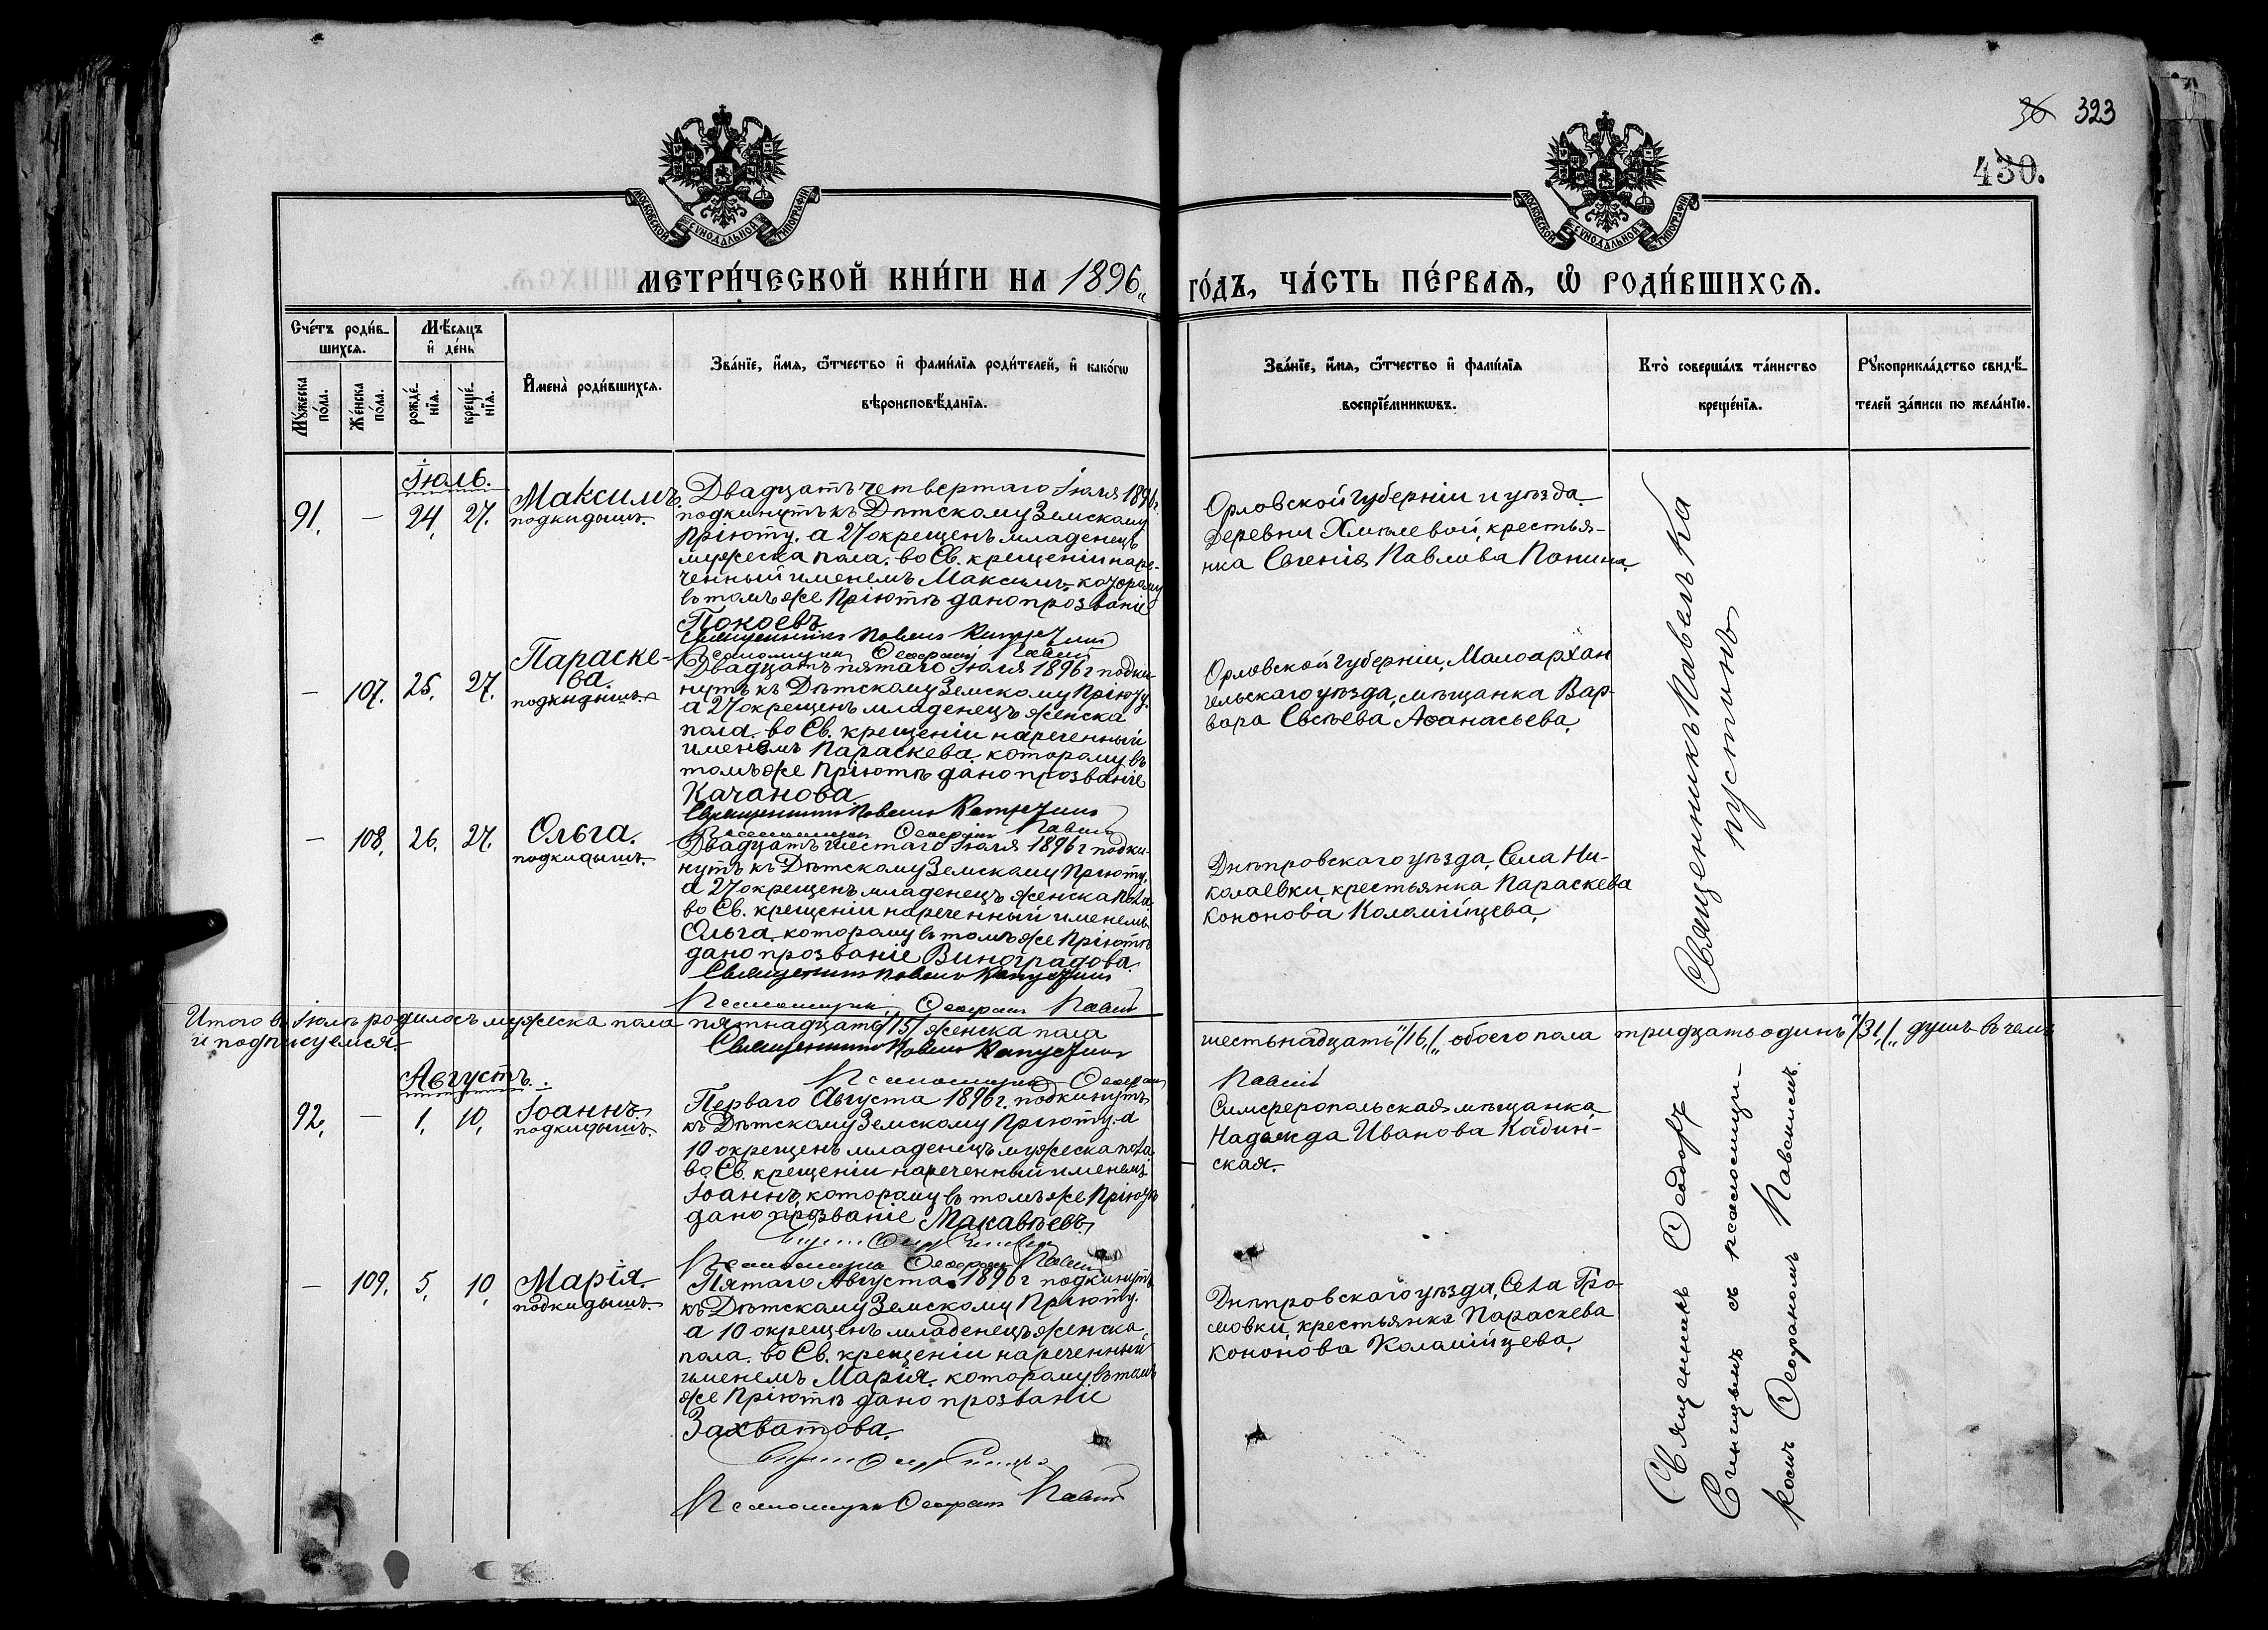 36 323
430.
МОСКОВСКОЙ СУНОДАЛЬНОЙ ТИПОГРАФІИ
МОСКОВСКОЙ СУНОДАЛЬНОЙ ТИПОГРАФІИ
МЕТРИ́ЧЕСКОЙ КНИ́ГИ НА 1896 „
ГО́ДЪ, ЧА́СТЬ ПЕ́РВАѦ, Ѽ РОДИ́ВШИХСѦ.
Сче́тъ роди́в-
шихся.
Мѣ́сяцъ
и҆ де́нь
Мꙋ́жеска по́ла.
Же́нска по́ла.
рожде́-
нїѧ.
креще́-
нїѧ.
И҆мена̀ роди́вшихсѧ.
Зва́нїе, и҆́мѧ, ѻ҆́тчество и҆ фами́лїѧ роди́телей, и҆ како́гѡ
вѣроисповѣ́данїѧ.
Зва́нїе, и҆́мѧ, ѻ҆́тчество и҆ фами́лїѧ
воспрїе́мникѡвъ.
Кто̀ соверша́лъ та́инство
креще́нїѧ.
Рꙋкоприкла́дство свидѣ́-
телей за́писи по жела́нїю.
Іюль.
91. — 24. 27. Максимъ.
подкидышъ.
Двадцать четвертаго Іюля 1896 г.
подкинутъ къ Дѣтскому Земскому
Пріюту. а 27 окрещенъ младенецъ
мужеска пола. во Св. крещеніи наре-
ченный именемъ Максимъ, которому
въ томъ же Пріютѣ дано прозваніе
Покоевъ.
Священникъ Павелъ Капустинъ
Псаломщикъ Ѳеофанъ
Орловской губерніи и уѣзда
деревни Хмѣлевой, крестья-
нка Евгенія Павлова Панина.
Священникъ Павелъ Ка
пустинъ
— 107. 25. 27. Параске-
ва.
подкидышъ.
Двадцать пятаго Іюля 1896 г подки-
нутъ къ Дѣтскому Земскому Пріюту.
а 27 окрещенъ младенецъ женска
пола. во Св. крещеніи нареченный
именемъ Параскева. которому въ
томъ же Пріютѣ дано прозваніе
Качанова.
Священникъ Павелъ Капустинъ
Псаломщикъ Ѳеофанъ
Орловской губерніи, Малоархан
гельскаго уѣзда, мѣщанка Вар-
вара Евсѣева Аѳанасьева.
— 108. 26. 27. Ольга.
подкидышъ.
Двадцать шестаго Іюля 1896 г подки-
нутъ къ Дѣтскому Земскому Пріюту.
а 27 окрещенъ младенецъ женска пола
во Св. крещеніи нареченный именемъ
Ольга. которому въ томъ же Пріютѣ
дано прозваніе Виноградова.
Священникъ Павелъ Капустинъ
Псаломщикъ Ѳеофанъ
Днѣпровскаго уѣзда, Села Ни-
колаевки, крестьянка Параскева
Кононова Коломійцева.
Итого въ Іюлѣ родилось мужеска пола пятнадцать /15/ женска пола
шестьнадцать „/16„/„ обоего пола тридцать одинъ „/31„/„ душъ въ чемъ
и подписуемся.
Священникъ Павелъ Капустинъ
Псаломщикъ Ѳеофанъ
Августъ.
92. — 1. 10. Іоаннъ.
подкидышъ.
Перваго Августа 1896 г. подкинутъ
къ Дѣтскому Земскому Пріюту. а
10 окрещенъ младенецъ мужеска пола.
во Св. крещеніи нареченный именемъ
Іоаннъ. которому въ томъ же Пріютѣ
дано прозваніе Макавѣевъ.
Псаломщикъ Ѳеофанъ
Симферопольская мѣщанка
Надежда Иванова Кадин-
ская.
Священникъ Ѳеодоръ
Синицынъ съ псаломщи-
комъ Ѳеофаномъ
— 109. 5. 10. Марія.
подкидышъ.
Пятаго Августа 1896 г подкинутъ
къ Дѣтскому Земскому Пріюту.
а 10 окрещенъ младенецъ женска
пола. во Св. крещеніи нареченный
именемъ Марія. которому въ томъ
же Пріютѣ дано прозваніе
Захватова.
Псаломщикъ Ѳеофанъ
Днѣпровскаго уѣзда, Села Гро-
мовки, крестьянка Параскева
Кононова Коломійцева.